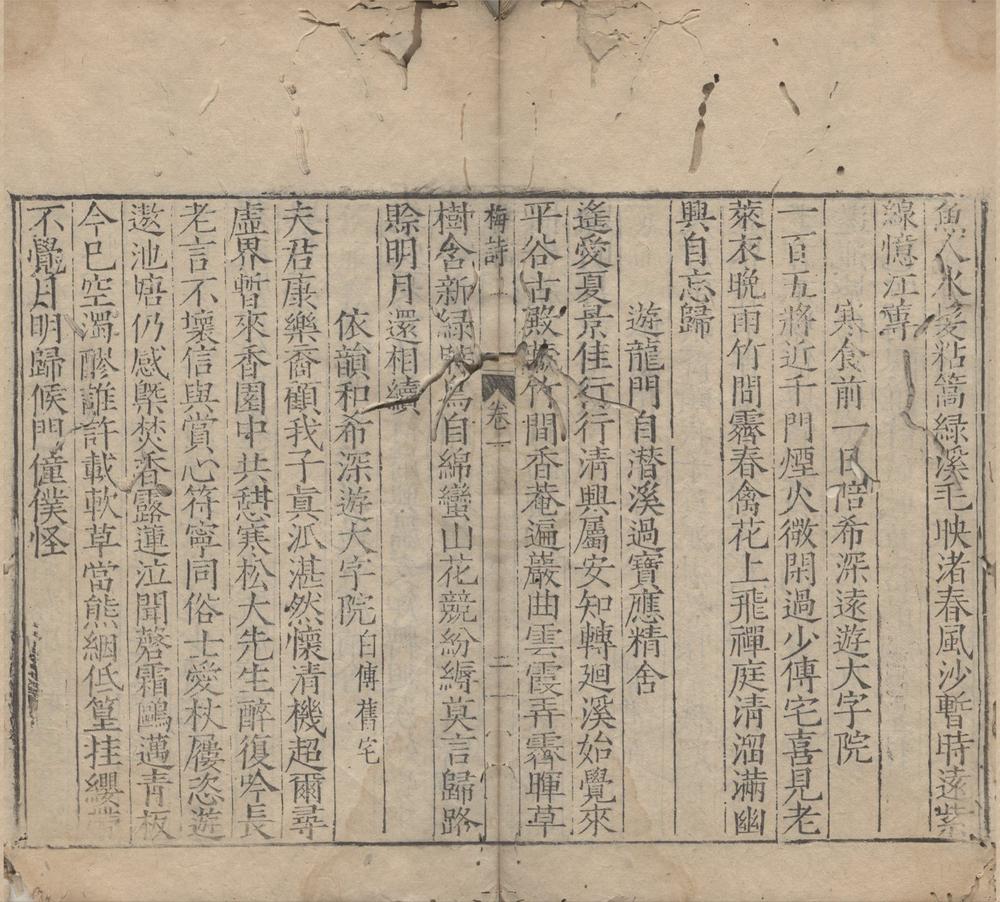 魚人水髮粘篙綠溪毛映渚春風沙暫時遠紫
線憶江蓴
寒食前一日陪希深遠遊大字院
一百五將近千門煙火微閑過少傅宅喜見老
萊衣晚雨竹間霽春禽花上飛禪庭清溜滿幽
興自忘歸
遊龍門自潛溪過寶應精舍
遙愛夏景佳行行清興屬安知轉廻溪始覺來
平谷古殿蔭竹間香菴遍巖曲雲霞弄霽暉草
梅詩
卷一
二
樹含新綠時鳥自綿蠻山花競紛縟莫言歸路
賒明月還相續
依韻和希深遊大字院
白傅舊宅
夫君康樂裔顧我子真派湛然懷清機超爾尋
虛界暫來香園中共憩寒松大先生醉復吟長
老言不壞信與賞心符寧同俗士愛杖屨恣遊
遨池塘仍感槩焚香露蓮泣聞磬霜鷗邁青板
今已空濁醪誰許載軟草當熊絪低篁挂纓帶
不覺月明歸候門僮僕怪